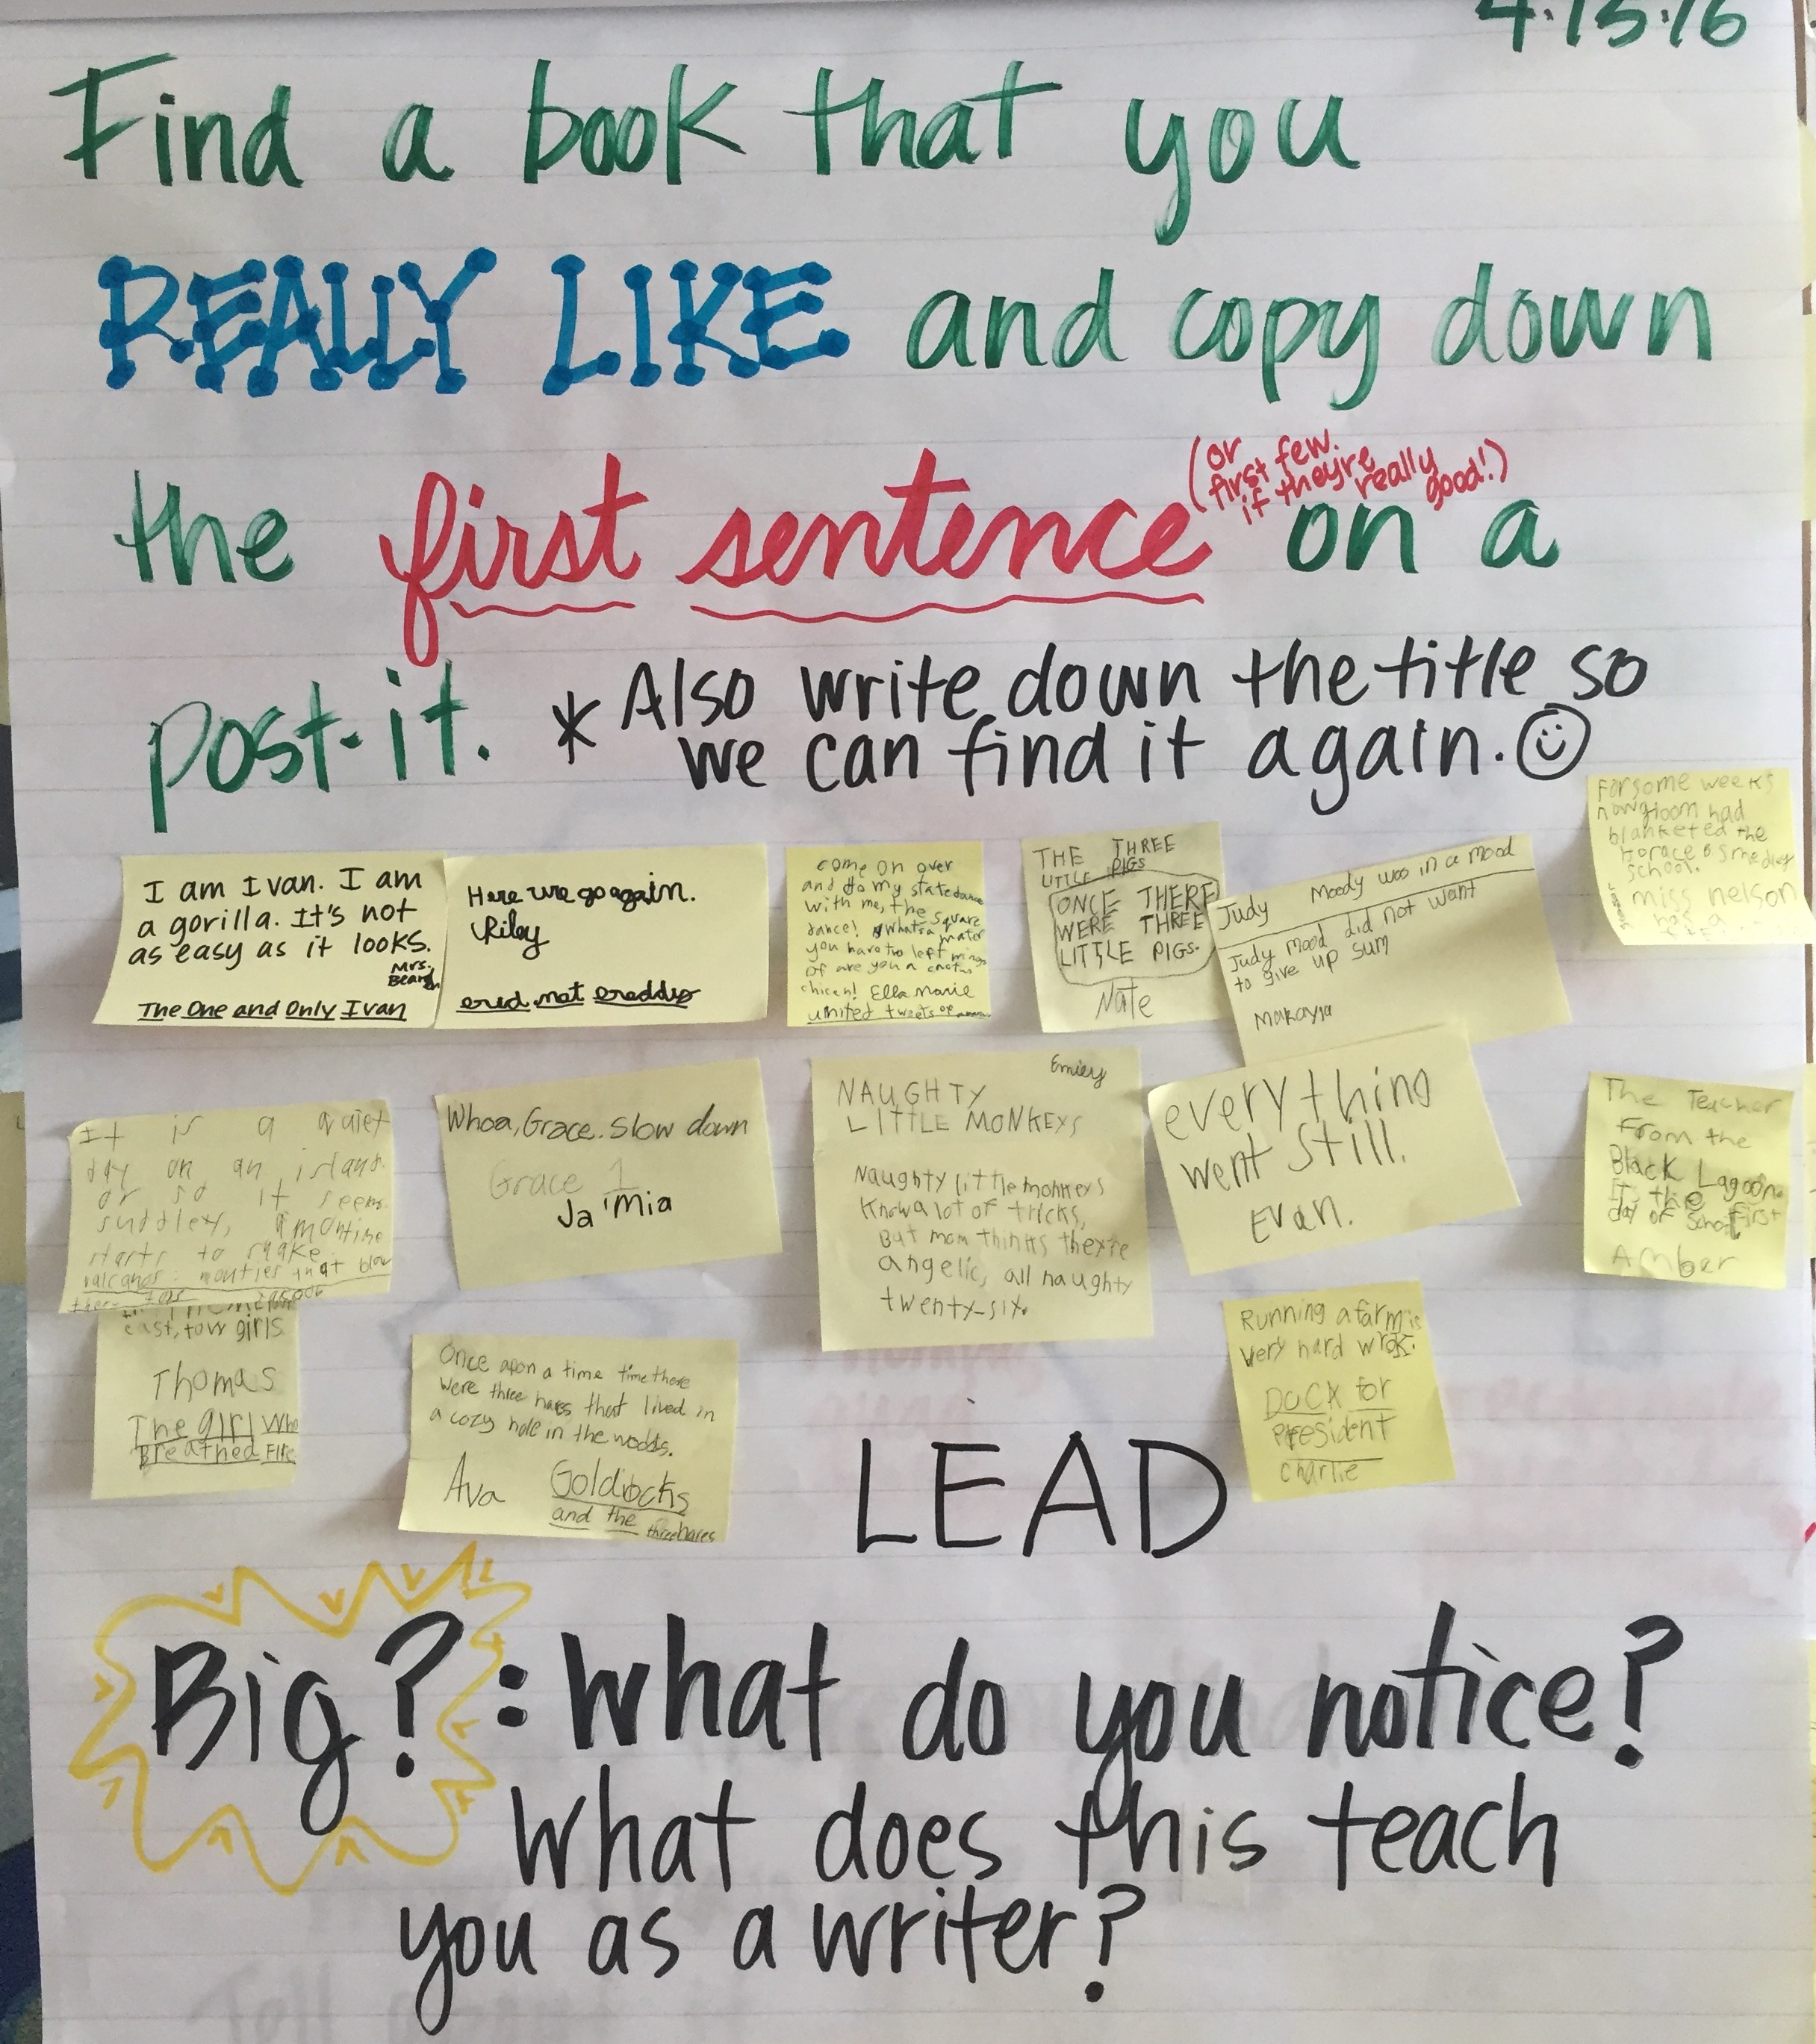 4.15.16
Find a book that you
REALLY LIKE and copy down
(or
first few.
if they're
really
good!)
the first sentence on a
post-it. *Also write down the title so
we can find it again.
I am Ivan. I am
a gorilla. It's not
as easy as it looks.
Mrs.
The One and Only Ivan
Here we go again.
Riley
come on over
and do my state dance
with me, the square
dance!
you have two left
or are you a
chicen! Ella Marie
united tweets of
THE THREE
LITTLE PIGS
ONCE THERE
WERE THREE
LITTLE PIGS.
Nate
Judy Moody was in a mood
Judy mood did not want
to give up sum
Makayla
For some weeks
now gloom had
blanketed the
Horace B Smedley
school.
miss nelson
has a
It is a quiet
day on an island.
or so it seems
starts to
Whoa, Grace. Slow down
Grace 1
Ja'Mia
Emiley
NAUGHTY
LITTLE MONKEYS
Naughty little monkeys
Know a lot of tricks,
But mom thinks they're
angelic, all naughty
twenty-six.
everything
went still.
Evan.
The Teacher
From the
Black Lagoon
It's the first
day of School
Amber
east, tow girls
Thomas
The girl Who
Breathed Fire
Once upon a time time there
were three hares that lived in
a cozy hole in the wodds.
Ava Goldilocks
and the three hares
Running a farm is
very hard wrok.
Duck for
President
Charlie
LEAD
Big?: What do you notice?
What does this teach
you as a writer?